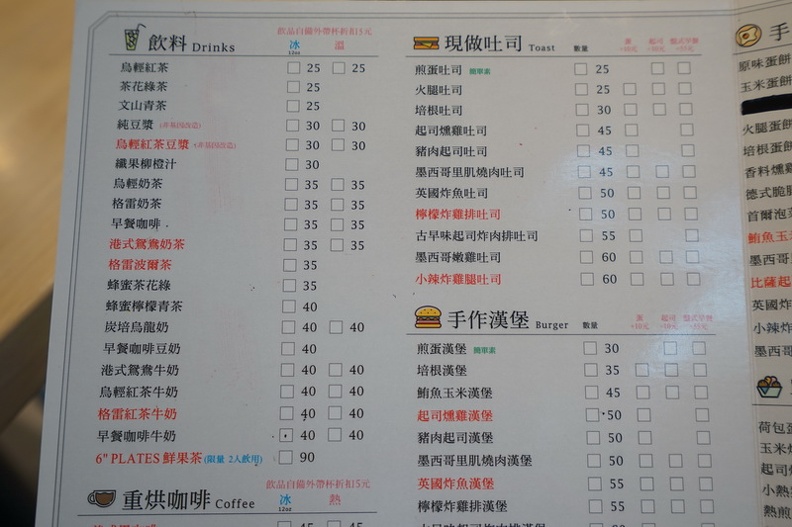 飲料 Drinks
飲品自備外帶杯折扣5元
冰 溫
12oz
烏輕紅茶 25 25
茶花綠茶 25
文山青茶 25
純豆漿 (非基因改造) 30 30
烏輕紅茶豆漿 (非基因改造) 30 30
纖果柳橙汁 30
烏輕奶茶 35 35
格雷奶茶 35 35
早餐咖啡 35 35
港式鴛鴦奶茶 35 35
格雷波爾茶 35
蜂蜜茶花綠 35
蜂蜜檸檬青茶 40
炭培烏龍奶 40 40
早餐咖啡豆奶 40
港式鴛鴦牛奶 40 40
烏輕紅茶牛奶 40 40
格雷紅茶牛奶 40 40
早餐咖啡牛奶 40 40
6" PLATES 鮮果茶 (限量 2人飲用) 90
重烘咖啡 Coffee
飲品自備外帶杯折扣5元
冰 熱
12oz
45 45
現做吐司 Toast 數量
蛋 起司
+10元 +10元
煎蛋吐司 簡單素 25
火腿吐司 25
培根吐司 30
起司燻雞吐司 45
豬肉起司吐司 45
墨西哥里肌燒肉吐司 45
英國炸魚吐司 50
檸檬炸雞排吐司 50
古早味起司炸肉排吐司 55
墨西哥嫩雞吐司 60
小辣炸雞腿吐司 60
手作漢堡 Burger 數量
蛋 起司
+10元 +10元
煎蛋漢堡 簡單素 30
培根漢堡 35
鮪魚玉米漢堡 45
起司燻雞漢堡 50
豬肉起司漢堡 50
墨西哥里肌燒肉漢堡 50
英國炸魚漢堡 55
檸檬炸雞排漢堡 55
手
原味蛋餅
玉米蛋餅
火腿蛋餅
培根蛋餅
香料燻雞
德式脆腸
首爾泡菜
鮪魚玉米
墨西哥
比薩起
英國炸
小辣炸
墨西哥
荷包蛋
玉米炸
起司
小熱
熱煎